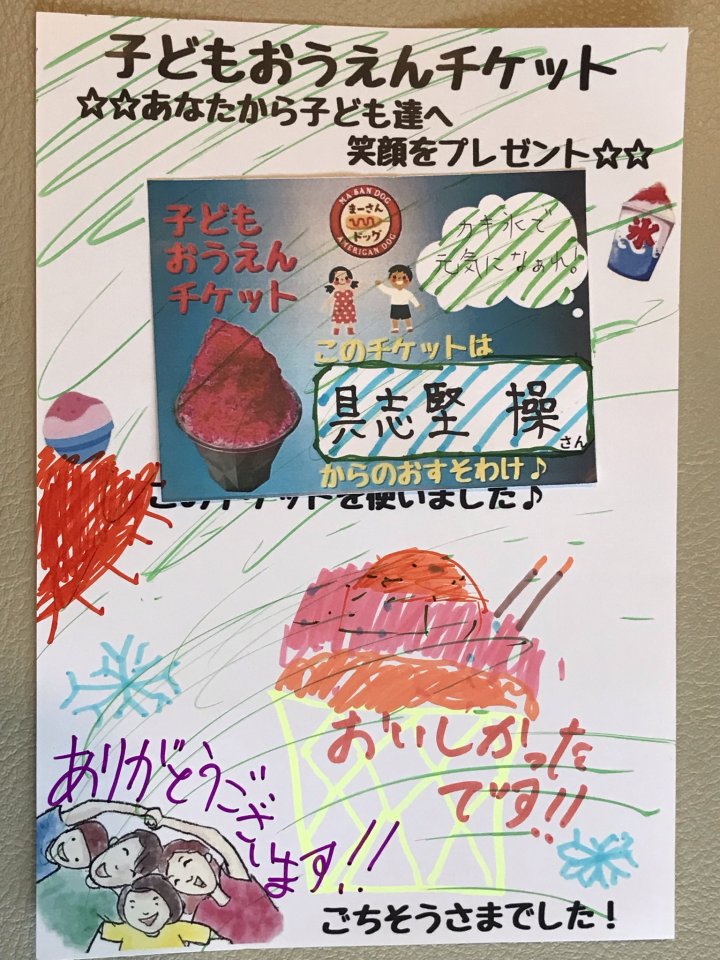 子どもおうえんチケット
☆☆あなたから子ども達へ
笑顔をプレゼント☆☆
子ども
おうえん
チケット
MA SAN DOG
まーさん
ドッグ
AMERICAN DOG
カキ氷で
元気になぁれ!
氷
このチケットは
具志堅 操さん
からのおすそわけ♪
このチケットを使いました♪
おいしかった
です!!
ありがとうござ
います!!
ごちそうさまでした!